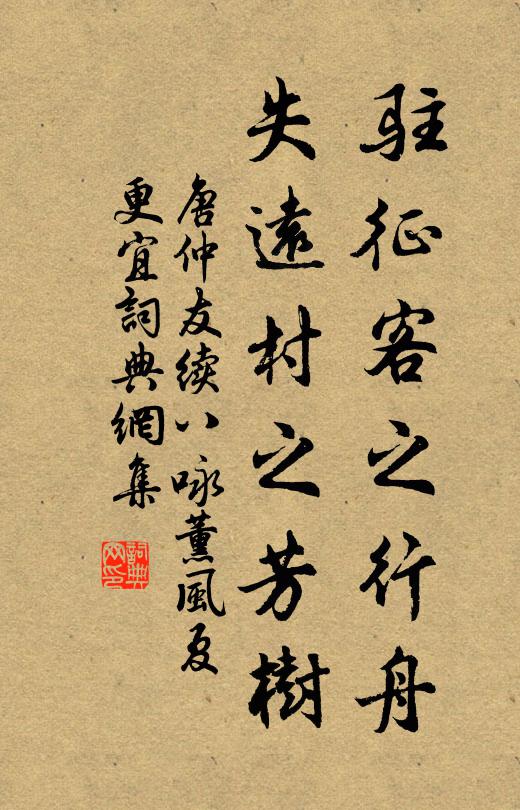 駐征客之行舟
失遠村之芳樹
唐仲友續八咏薰風夏
更宜詞典網集
詞典